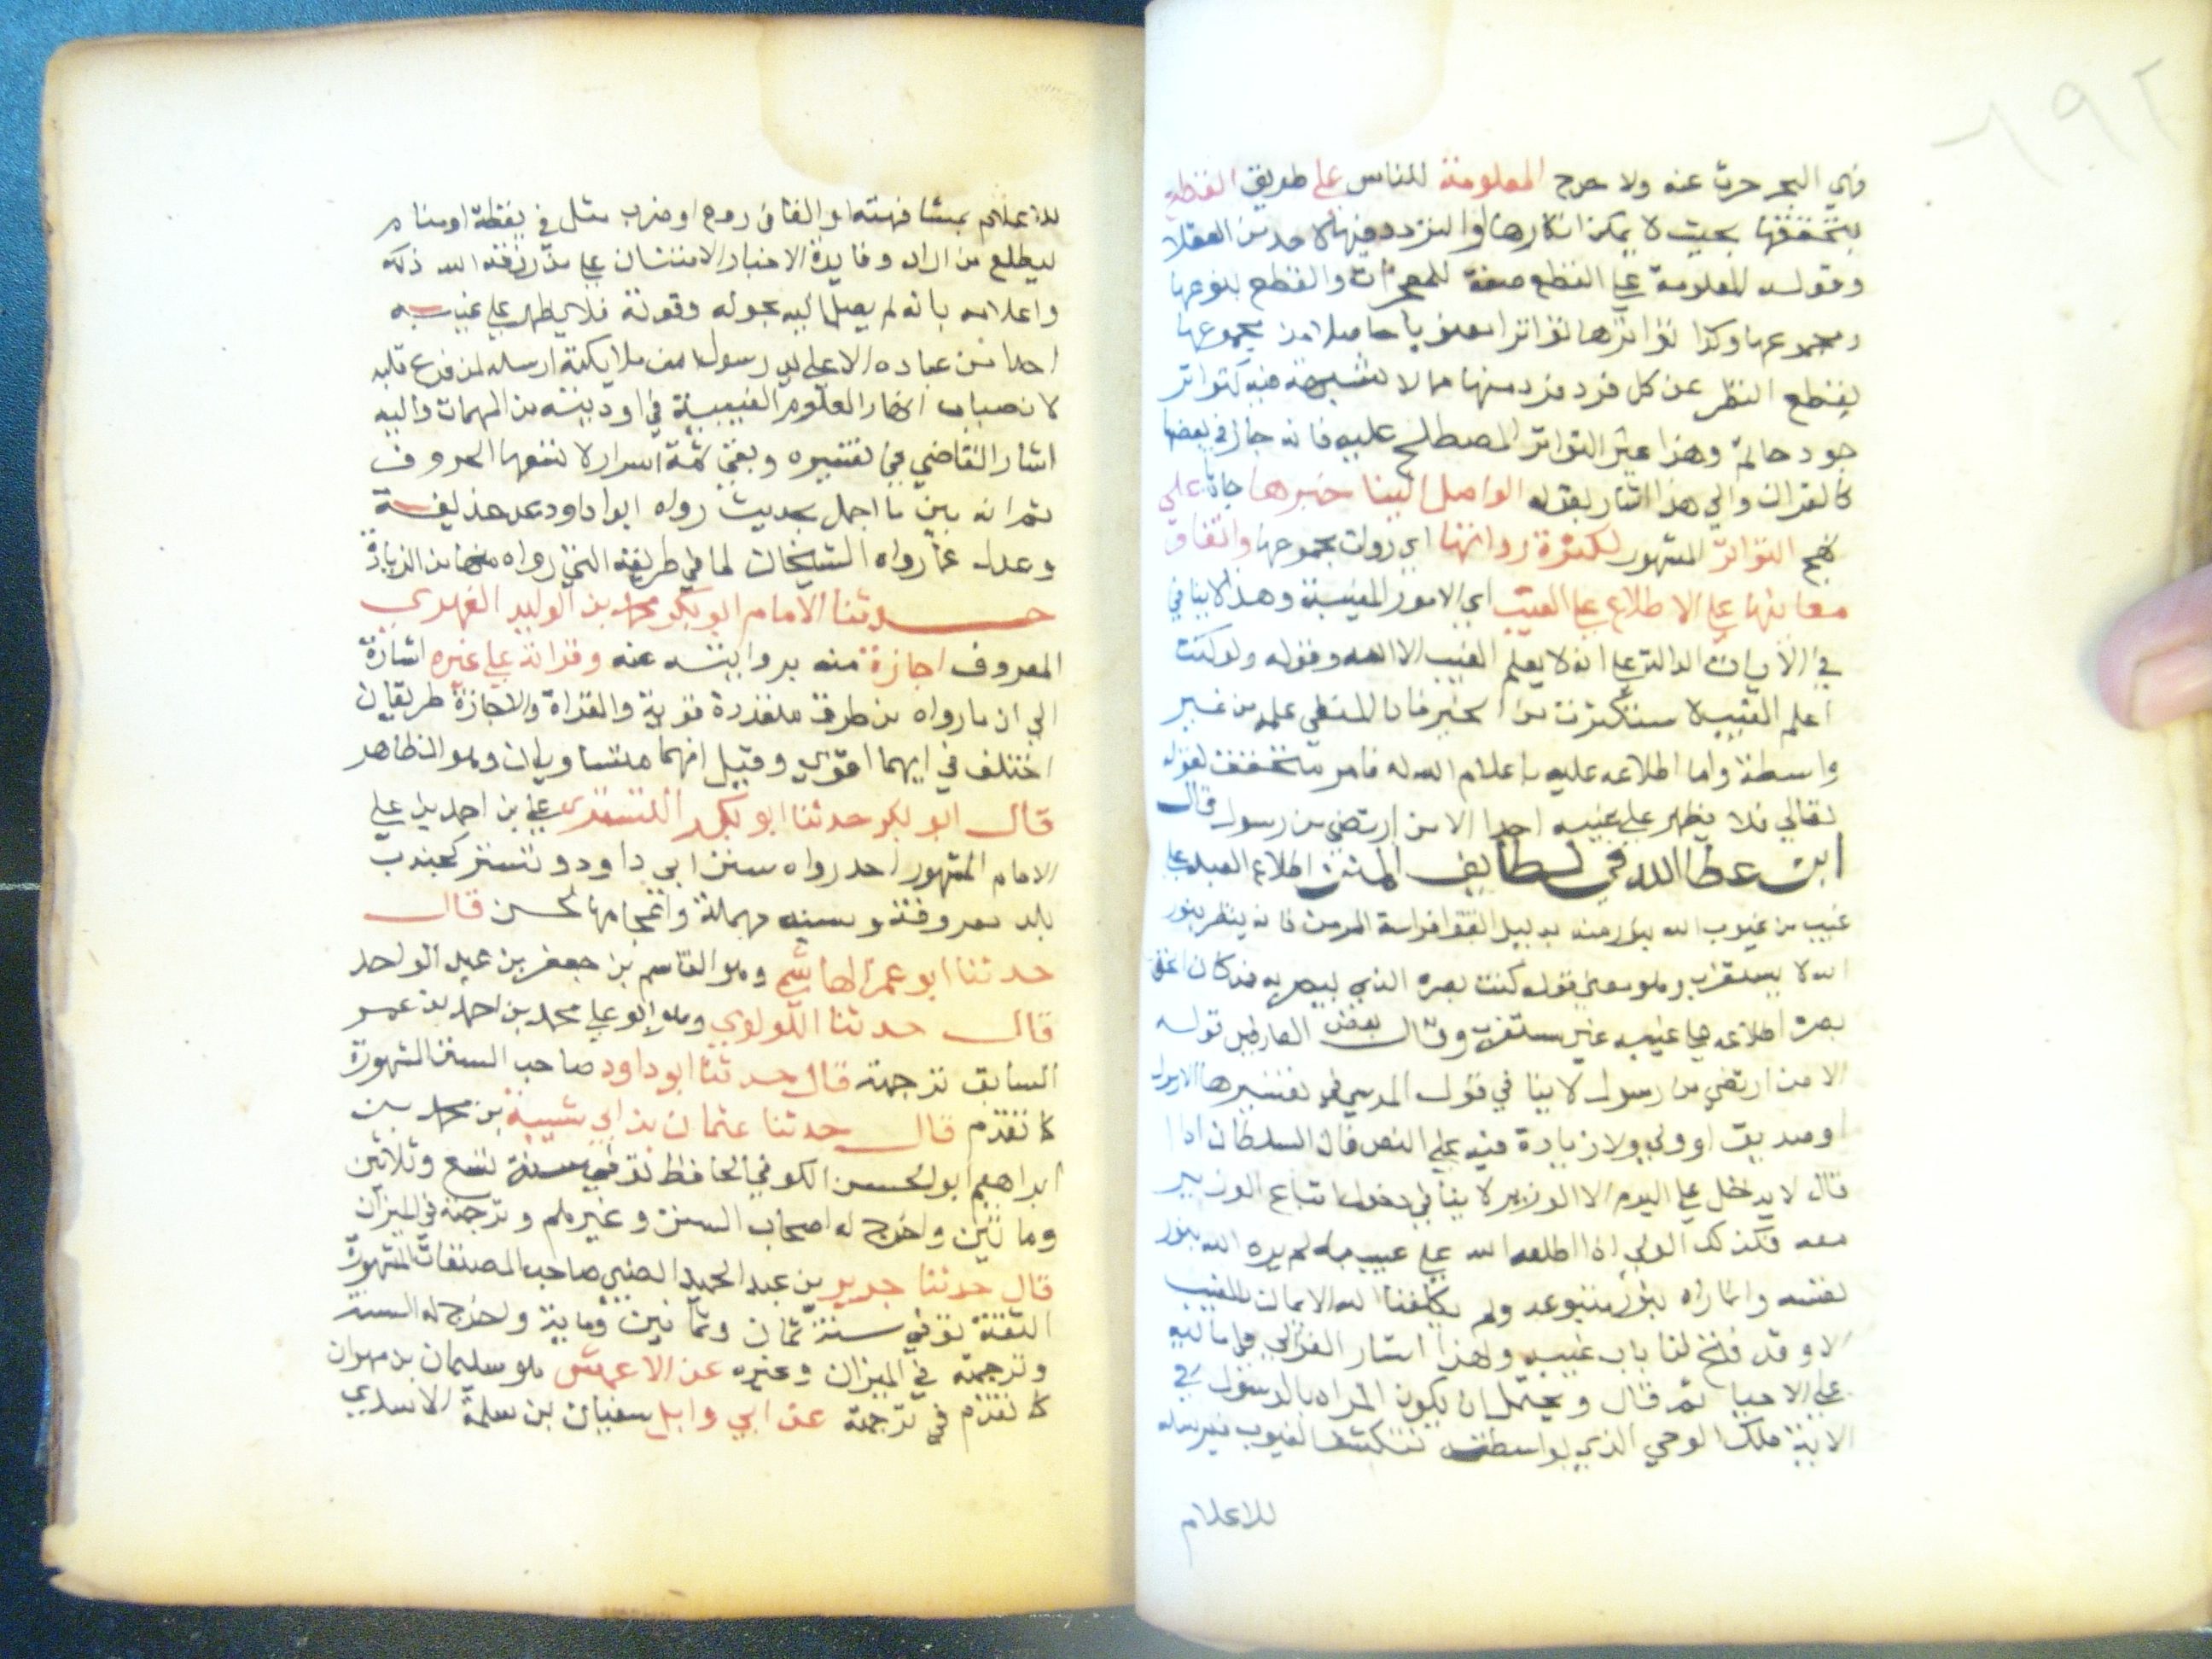 ٦٩٢
فهي البحر حدث عنه ولا حرج المعلومة للناس على طريق القطع
بتحققها بحيث لا يمكن انكارها والتردد فيها لاحد من العقلا
وقوله المعلومة على القطع صفة للمعجزات والقطع بنوعها
ومجموعها وكذا تواترها تواترا معنويا حاصلا من مجموعها
بقطع النظر عن كل فرد فرد منها مما لا شبهة فيه كتواتر
جود حاتم وهذا غير التواتر المصطلح عليه فانه جاز في بعضها
كالقران والى هذا اشار بقوله الواصل الينا خبرها جاريا على
نهج التواتر المشهور لكثرة رواتها اي روات مجموعها واتفاق
معانيها على الاطلاع على الغيب اي الامور المغيبة وهذا لا ينافي
في الآيات الدالة على انه لا يعلم الغيب الا الله وقوله ولو كنت
اعلم الغيب لا ستكثرت من الخير فان المنفي علمه من غير
واسطة واما اطلاعه عليه باعلام الله له فامر متحقق لقوله
تعالى فلا يظهر على غيبه احدا الا من ارتضى من رسول قال
ابن عطا الله في لطايف المنن اطلاع العبد على
غيب من غيوب الله بنور منه بدليل اتقوا فراسة المومن فانه ينظر بنور
الله لا يستغرب وهو معنى قوله كنت بصره الذي يبصر به فمن كان الحق
بصره اطلاعه على غيبه غير مستغرب وقال بعض العارفين قوله
الا من ارتضى من رسول لا ينافي قول المرسي في تفسيرها الا رسول
او صديق او ولي ولا زيادة فيه على النص فان السلطان اذا
قال لا يدخل علي اليوم الا الوزير لا ينافي دخول اتباع الوزير
معه فكذلك الولي اذا اطلعه الله على غيبه لم يره الله بنور
نفسه وانما راه بنور متبوعه ولم يكلفنا الله الايمان بالغيب
الا وقد فتح لنا باب غيبه ولهذا اشار الغزالي في اماليه
على الاحيا ثم قال ويحتمل ان يكون المراد بالرسول في
الاية ملك الوحي الذي بواسطته تنكشف الغيوب فيرسله
للاعلام
للاعلام بمشافهته او القا في روع او ضرب مثل في يقظة او منام
ليطلع من اراد وفايدة الاخبار الامتنان على من رزقه الله ذلك
واعلامه بانه لم يصل اليه بحوله وقوته فلا يظهر على غيبه
احدا من عباده الا على يد رسول من ملايكته ارسله لمن فرغ قلبه
لانصباب انهار العلوم الغيبية في اوديته من المهمات واليه
اشار القاضي في تفسيره وبقي ثمة اسرار لا تسعها الحروف
ثم انه بين ما اجمل بحديث رواه ابو داود عن حذيفة
وعدل عما رواه الشيخان لما في طريقه التي رواه منها من الزيادة
حدثنا الامام ابو بكر محمد بن الوليد الفهري
المعروف اجازة منه بروايته عنه وقراته على غيره اشارة
الى ان ما رواه من طرق متعددة قوية والقراة والاجازة طريقان
اختلف في ايهما اقوى وقيل انهما متساويان وهو الظاهر
قال ابو بكر حدثنا ابو بكر التستري علي بن احمد بن علي
الامام المشهور احد رواه سنن ابي داود وتستر كجندب
بلد معروفة وسينه مهملة واعجامها لحن قال
حدثنا ابو عمر الهاشمي وهو القاسم بن جعفر بن عبد الواحد
قال حدثنا اللولوي وهو ابو علي محمد بن احمد بن عمر
السابق ترجمته قال حدثنا ابو داود صاحب السنن المشهورة
كما تقدم قال حدثنا عثمان بن ابي شيبة بن محمد بن
ابراهيم ابو الحسن الكوفي الحافظ توفي سنة تسع وثلاثين
ومائتين واخرج له اصحاب السنن وغيرهم وترجمته في الميزان
قال حدثنا جرير بن عبد الحميد الضبي صاحب المصنفات المشهورة
الثقة توفي سنة ثمان وثمانين وماية واخرج له الستة
وترجمته في الميزان وغيره عن الاعمش هو سليمان بن مهران
كما تقدم في ترجمته عن ابي وايل سفيان بن سلمة الاسدي